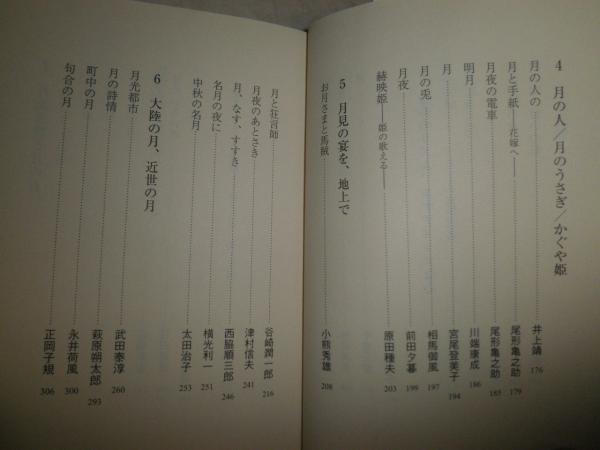 4 月の人／月のうさぎ／かぐや姫
月の人の 井上靖 176
月と手紙 ——花嫁へ—— 尾形亀之助 179
月夜の電車 尾形亀之助 185
明月 川端康成 186
月 宮尾登美子 194
月の兎 相馬御風 197
月夜 前田夕暮 199
赫映姫 ——姫の歌える—— 原田種夫 203
5 月見の宴を、地上で
お月さまと馬賊 小熊秀雄 208
月と狂言師 谷崎潤一郎 216
月夜のあとさき 津村信夫 241
月、なす、すすき 西脇順三郎 246
名月の夜に 横光利一 251
中秋の名月 太田治子 253
6 大陸の月、近世の月
月光都市 武田泰淳 260
月の詩情 萩原朔太郎 293
町中の月 永井荷風 300
句合の月 正岡子規 306